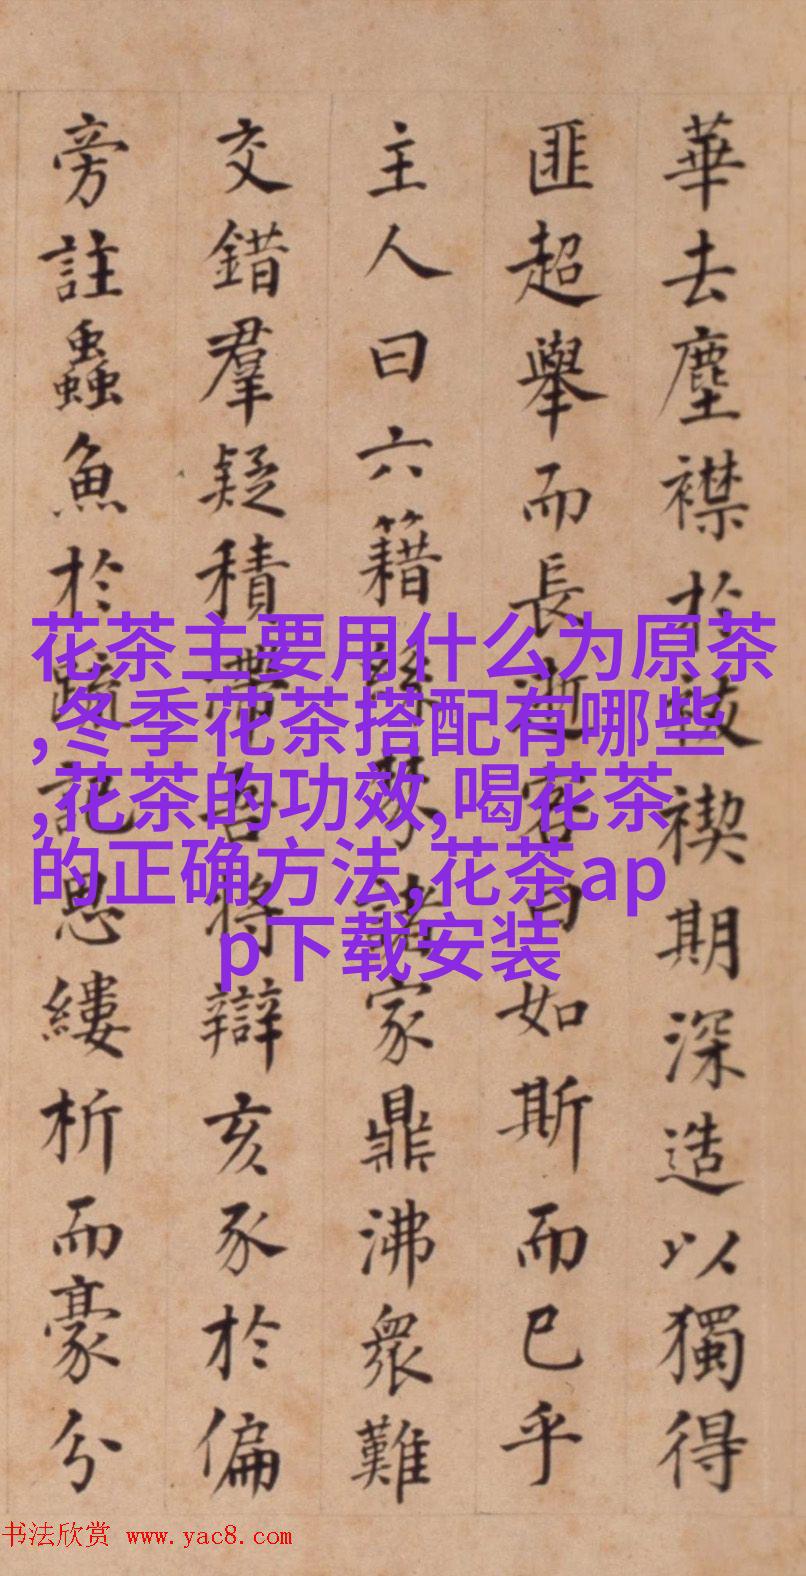 華去塵襟於祓禊期深造以獨得
匪超舉而長逝客曰如斯而已乎
主人曰六籍絲棼諸家鼎沸衆難
交錯羣疑積滯吾將辯亥豕於偏
旁註蟲魚於疏記思縷析而豪分
花茶主要用什么为原茶
,冬季花茶搭配有哪些
,花茶的功效,喝花茶
的正确方法,花茶ap
p下载安装
书法欣赏 www.yac8.com